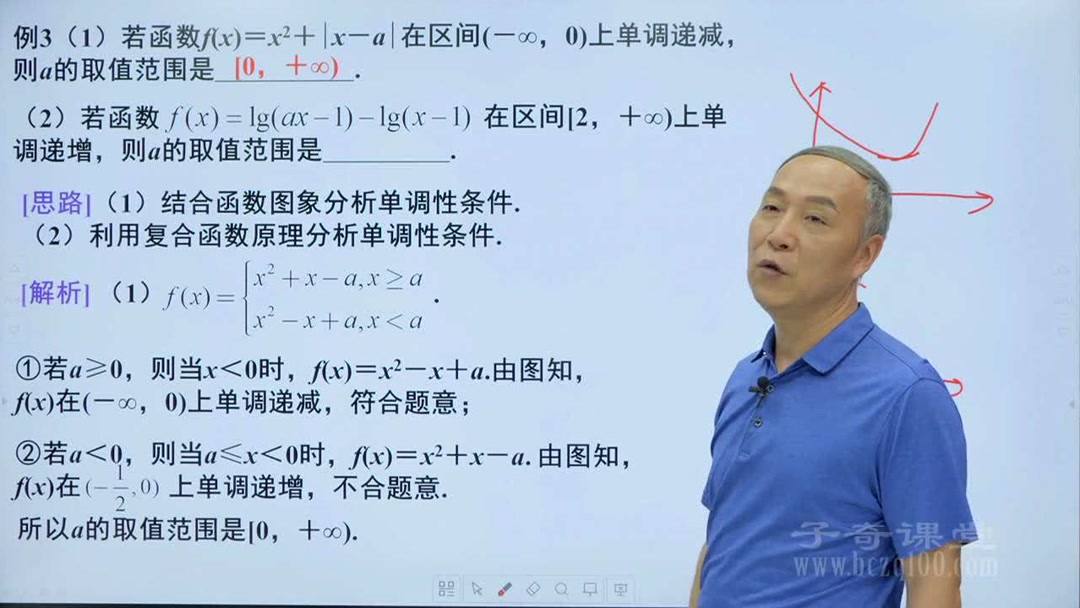 例3（1）若函数f(x)=x²+|x-a|在区间(-∞，0)上单调递减，
则a的取值范围是 [0，+∞) .
（2）若函数 f(x)=lg(ax-1)-lg(x-1) 在区间[2，+∞)上单
调递增，则a的取值范围是__________.
[思路]（1）结合函数图象分析单调性条件.
（2）利用复合函数原理分析单调性条件.
[解析]（1）f(x)={x²+x-a,x≥a
x²-x+a,x<a .
①若a≥0，则当x<0时，f(x)=x²-x+a.由图知，
f(x)在(-∞，0)上单调递减，符合题意；
②若a<0，则当a≤x<0时，f(x)=x²+x-a.由图知，
f(x)在(-1/2,0)上单调递增，不合题意.
所以a的取值范围是[0，+∞).
子奇课堂
www.bczq100.com